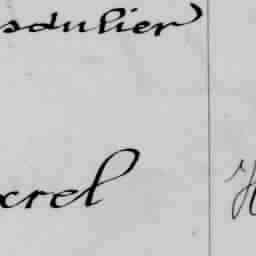 sdulier
crel H